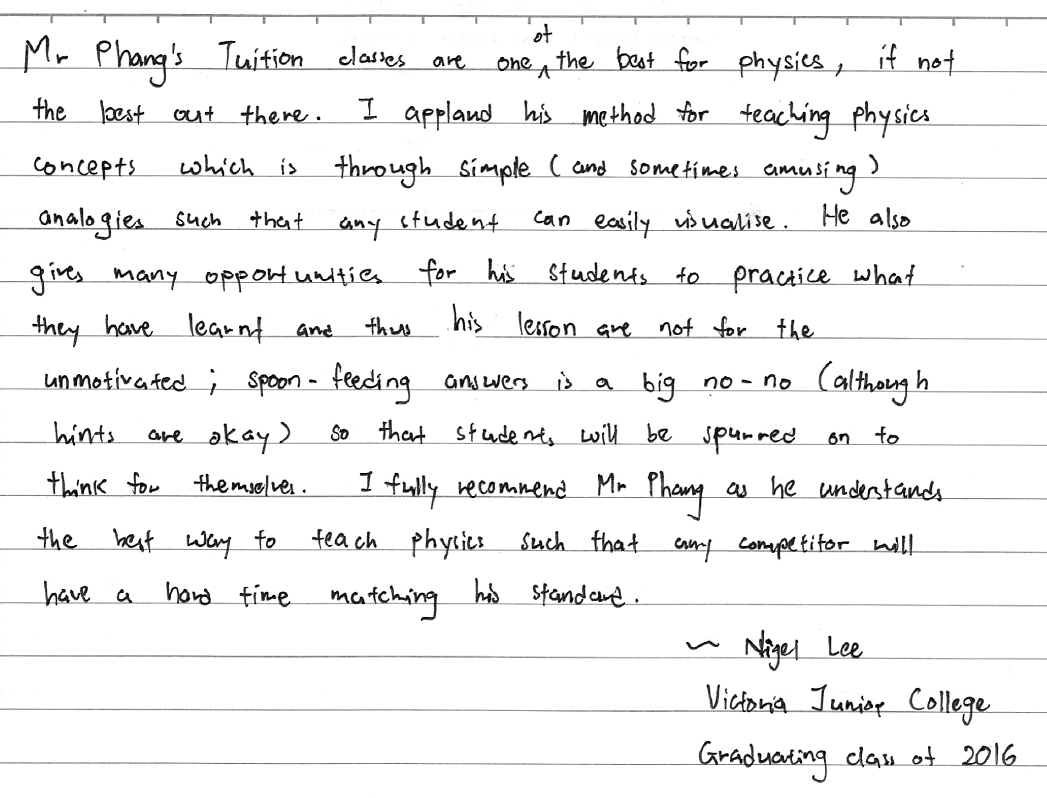 Mr Phang's Tuition classes are one of the best for physics, if not
the best out there. I applaud his method for teaching physics
concepts which is through simple (and sometimes amusing)
analogies such that any student can easily visualise. He also
gives many opportunities for his students to practice what
they have learnt and thus his lesson are not for the
unmotivated; spoon-feeding answers is a big no-no (although
hints are okay) so that students will be spurred on to
think for themselves. I fully recommend Mr Phang as he understands
the best way to teach physics such that any competitor will
have a hard time matching his standard.
~ Nigel Lee
Victoria Junior College
Graduating class of 2016